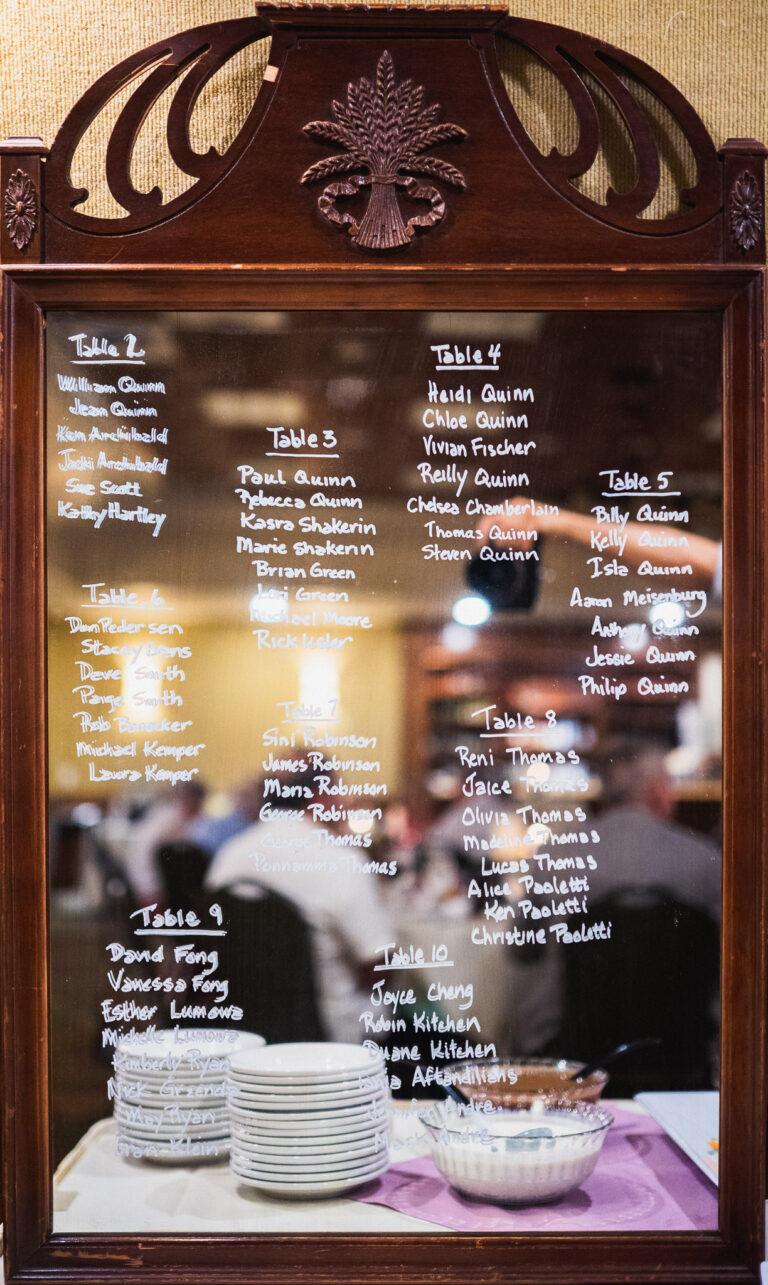 Table 2
William Quinn
Jean Quinn
Ken Archibald
Jacki Archibald
Sue Scott
Kathy Hartley
Table 3
Paul Quinn
Rebecca Quinn
Kasra Shakerin
Marie Shakerin
Brian Green
Lori Green
Michael Moore
Rick
Table 4
Heidi Quinn
Chloe Quinn
Vivian Fischer
Reilly Quinn
Chelsea Chamberlain
Thomas Quinn
Steven Quinn
Table 5
Billy Quinn
Kelly Quinn
Isla Quinn
Aaron Meisenburg
Anthony Quinn
Jessie Quinn
Philip Quinn
Table 6
Dan Pedersen
Stacey
Dave Smith
Paige Smith
Rob
Michael Kemper
Laura Kemper
Table 7
Sini Robinson
James Robinson
Maria Robinson
George Robinson
George Thomas
Ponnamma Thomas
Table 8
Reni Thomas
Jaice Thomas
Olivia Thomas
Madeline Thomas
Lucas Thomas
Alice Paoletti
Ken Paoletti
Christine Paoletti
Table 9
David Fong
Vanessa Fong
Esther Lumowa
Michelle Lumowa
Kimberly Ryan
Nick
May Ryan
Fran Klein
Table 10
Joyce Cheng
Robin Kitchen
Duane Kitchen
Aftandilians
André
Mark André